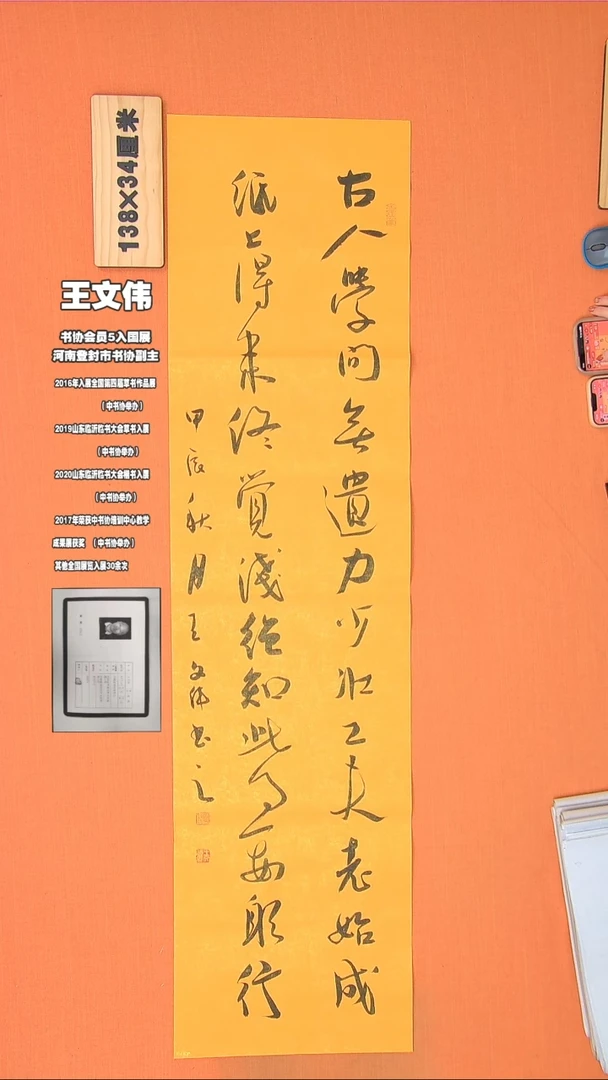 138×34厘米
王文伟
书协会员5入国展
河南登封市书协副主
2016年入展全国第四届草书作品展
(中书协举办)
2019山东临沂临书大会草书入展
(中书协举办)
2020山东临沂临书大会楷书入展
(中书协举办)
2017年荣获中书协培训中心教学
成果展获奖 (中书协举办)
其他全国展览入展30余次
古人學问無遺力少壯工夫老始成
纸上得来终覺淺絕知此事要躬行
甲辰秋月王文伟书之